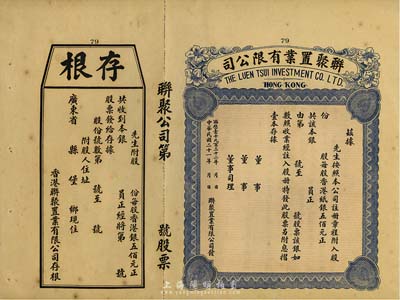 79
聯聚置業有限公司
THE LUEN TSUI INVESTMENT CO. LTD.
HONG KONG
茲據
先生按照本公司註冊章程附入股
份 股每股香港紙銀五佰元正
共該本銀 員正
由第 號至 號股票該銀如
數照收業經註入股冊特發此股票另附息摺
壹本存據
董事
董事
董事司理
中華民國二十一年 月 日 聯聚置業有限公司發
聯聚公司第 號股票
79
存根
先生附股
份每股香港銀五佰元正
共收到本銀 員正經將第 號
股票發給存據
股份號數第 號至 號
附股人住址
廣東省 縣 堡 鄉現住
香港聯聚置業有限公司存根